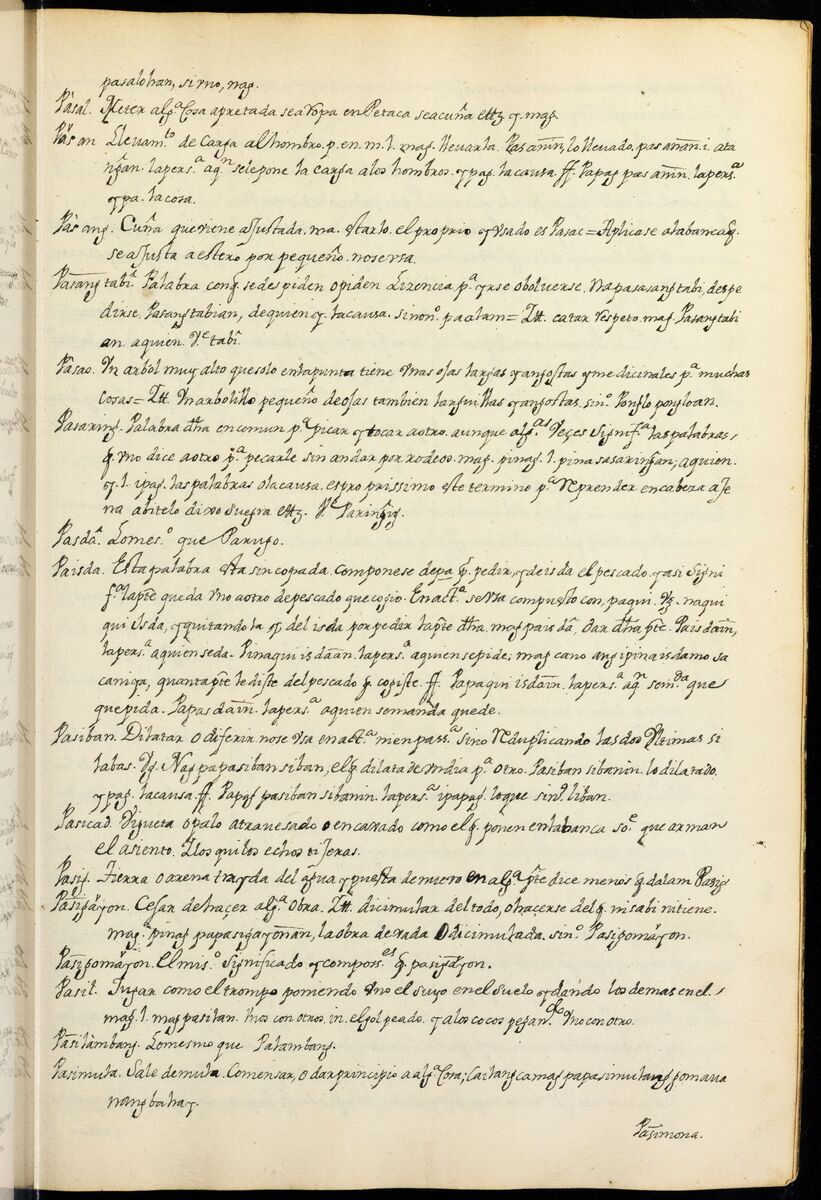 pasalohan, si no, nag.
Pàsal. Meter algª Cosa apretada sea ropa en Petaca sea cuña ettz. y mag.
Pàs an Llevamto de Carga al hombro. p. en. m. l. mag. llevarla. Pas anin, lo llevado, pas anan. i. ata
ngan. la persª aqn se le pone la carga a los hombros. y pag. la causa. ff. Papag pas anin. la persª
y pa. la cosa.
Pàs ang. Cuña que viene ajustada. ma. starlo. el proprio y usado es Pasac = Aplicase a la banca q.
se ajusta a estero por pequeño. no se usa.
Pasang tabi. Palabra con q se despiden o piden Lizencia pª yrse o bolverse. Napasasang tabi, despe
dirse. Pasang tabian, de quien y. la causa. sinono paalam = Itt. catar respeto. mag. Pasang tabi
an. a quien. Ve tabi.
Pàsao. Un arbol muy alto que solo en la punta tiene unas ojas largas y angostas y medicinales pª muchas
cosas = Itt. Un arbolillo pequeño de ojas tambien larguillas y angostas. sino. Pongloponģloan.
Pasaring. Palabra dha en comun pª picar y tocar a otro. aunque algas veçes Signifª las palabras,
q. uno dice a otro pª pecarle sin andar por rodeos. mag. pinag. l. pinasasaringan; a quien.
y. l. ipag. las palabras o la causa. es proprissimo este termino pª Reprender en cabeza aje
na a bitelo dixo suegra ettz. Ve Paringig.
Pasda. Lo meso que Parugo.
Paisda. Esta palabra sta sincopada. componese de pa q. pedir, y de isda el pescado. y asi Signi
fª la pte que da uno a otro de pescado que cogio. En actª se usa compuesto con, paqui. Vg. naqui
qui isda, y quitando la y del isda por pedir la pte dha. mag pais dà, dar dha pte. Pais daan,
la persª a quien se da. Pinaqui is daan. la persª a quien se pide; mag cano ang ipina isda mo sa
caniya, quanta pte le diste del pescado q. cogiste. ff. Papaqui isdain. la persª aqn semda que
que pida. Papas dain. la persª a quien se manda que de.
Pasiban. Dilatar o diferir no se usa en actª ni en passª sino Reduplicando las dos ultimas si
labas. Vg. Nag papasiban siban, el q dilata de un dia pª otro. Pasiban sibanin. lo dilatado.
y pag. la causa. ff. Papag pasiban sibanin. la persª ipapag. lo que sino liban.
Pasicad. Vigueta o palo atravesado o encaxado como el q. ponen en la banca soe que arman
el asiento. I los quilos echos tijeras.
Pasig. Tierra o arena trayda del agua y puesta de nuevo en algª pte dice menos q dalam Pasig
Pasigayon. Cesar de haçer algª obra. Itt. dicimular del todo, o hacerse del q. ni sabi ni tiene.
mag. pinag papasigayonan, la obra dexada o dicimulada. sino Pasigomayon.
Pasigomayon. el miso significado y composses q pasigayon.
Pasil. Jugar como el trompo poniendo uno el suyo en el suelo y dando los demas en el.
mag. l. magpasilan. unos con otros. in. el golpeado. y a los cocos pegando uno con otro.
Pàsilambang. Lo mesmo que Palambang.
Pasimula. Sale de mula. Comensar, o dar principio a algª Cosa; Cailang ca mag papasimulang gomaua
nang bahay.
Pasimona.